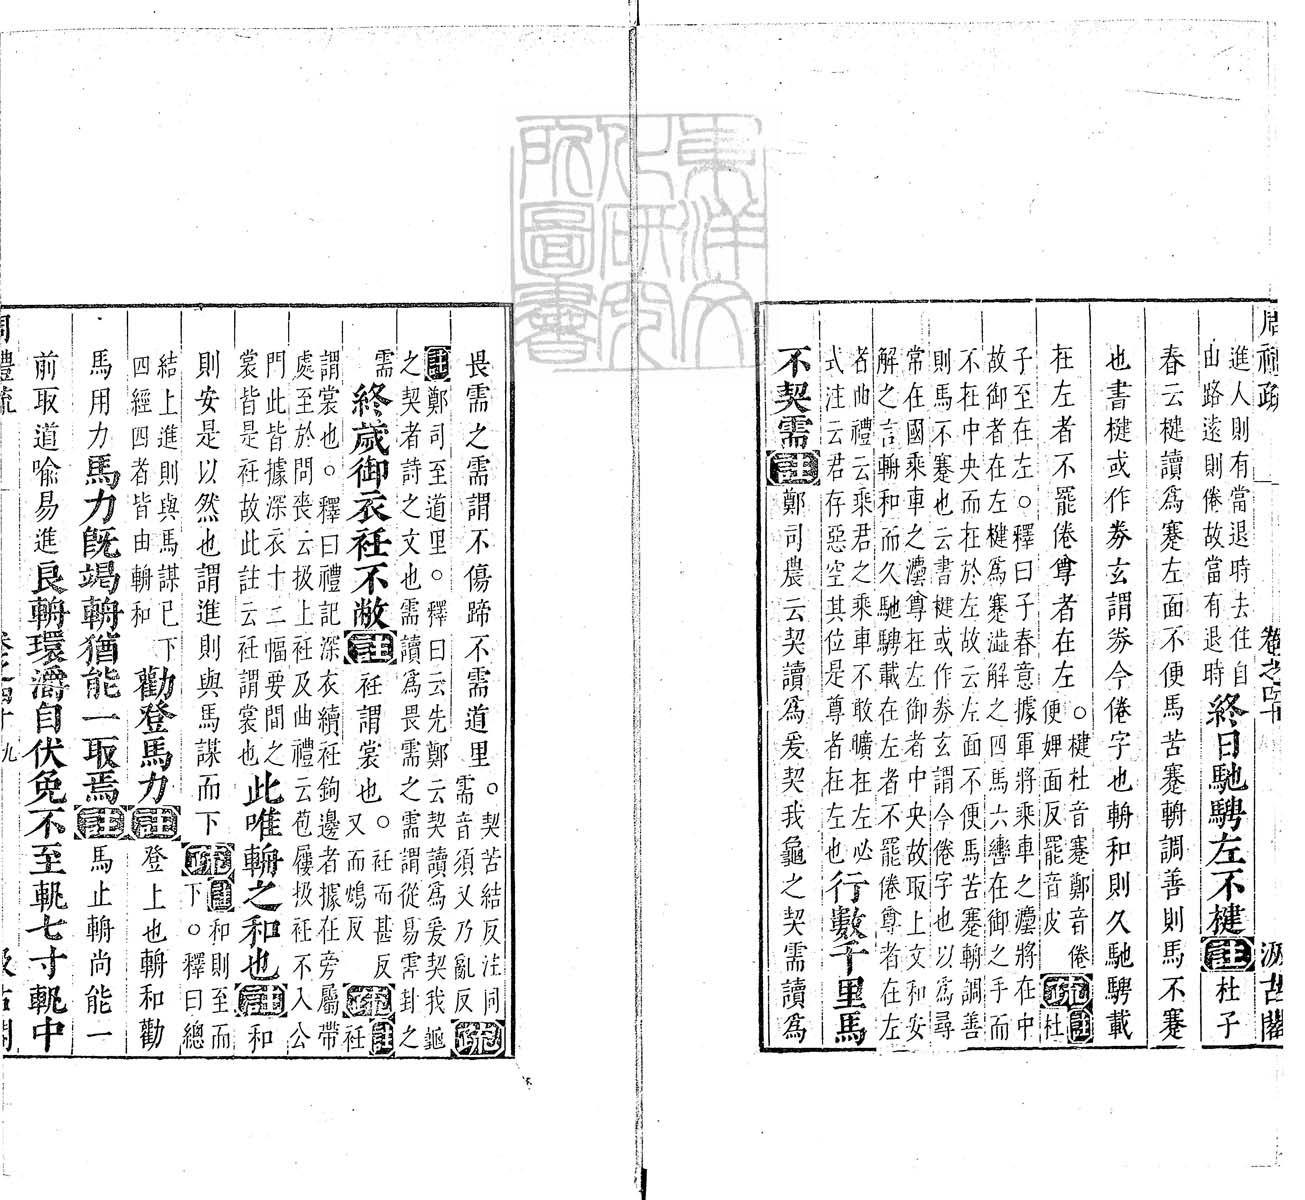 周禮疏　卷之四十　汲古閣
進人則有當退時去住自
由路遠則倦故當有退時
終日馳騁左不楗註杜子
春云楗讀爲蹇左面不便馬苦蹇輈調善則馬不蹇
也書楗或作券玄謂券今倦字也輈和則久馳騁載
在左者不罷倦尊者在左
○楗杜音蹇鄭音倦
便婢面反罷音皮
疏註杜
子至在左○釋曰子春意據軍將乘車之灋將在中
故御者在左楗爲蹇澁解之四馬六轡在御之手而
不在中央而在於左故云左面不便馬苦蹇輈調善
則馬不蹇也云書楗或作券玄謂今倦字也以爲尋
常在國乘車之灋尊在左御者中央故取上文和安
解之言輈和而久馳騁載在左者不罷倦尊者在左
者曲禮云乘君之乘車不敢曠在左必
式注云君存惡空其位是尊者在左也
行數千里馬
不契需註鄭司農云契讀爲爰契我龜之契需讀爲
畏需之需謂不傷蹄不需道里
○契苦結反注同
需音須又乃亂反
疏
註鄭司至道里○釋曰云先鄭云契讀爲爰契我龜
之契者詩之文也需讀爲畏需之需謂從易需卦之
需
終歲御衣衽不敝註衽謂裳也
○衽而甚反
又而鴆反
疏註衽
謂裳也○釋曰禮記深衣續衽鉤邊者據在旁屬帶
處至於問喪云扱上衽及曲禮云苞屨扱衽不入公
門此皆據深衣十二幅要間之
裳皆是衽故此註云衽謂裳也
此唯輈之和也註和
則安是以然也謂進則與馬謀而下
疏註和則至而
下○釋曰總
結上進則與馬謀已下
四經四者皆由輈和
勸登馬力註登上也輈和勸
馬用力馬力旣竭輈猶能一取焉註馬止輈尚能一
前取道喻易進良輈環灂自伏免不至軓七寸軓中
周禮疏　卷之四十　九　汲古閣
東洋文化研究所圖書